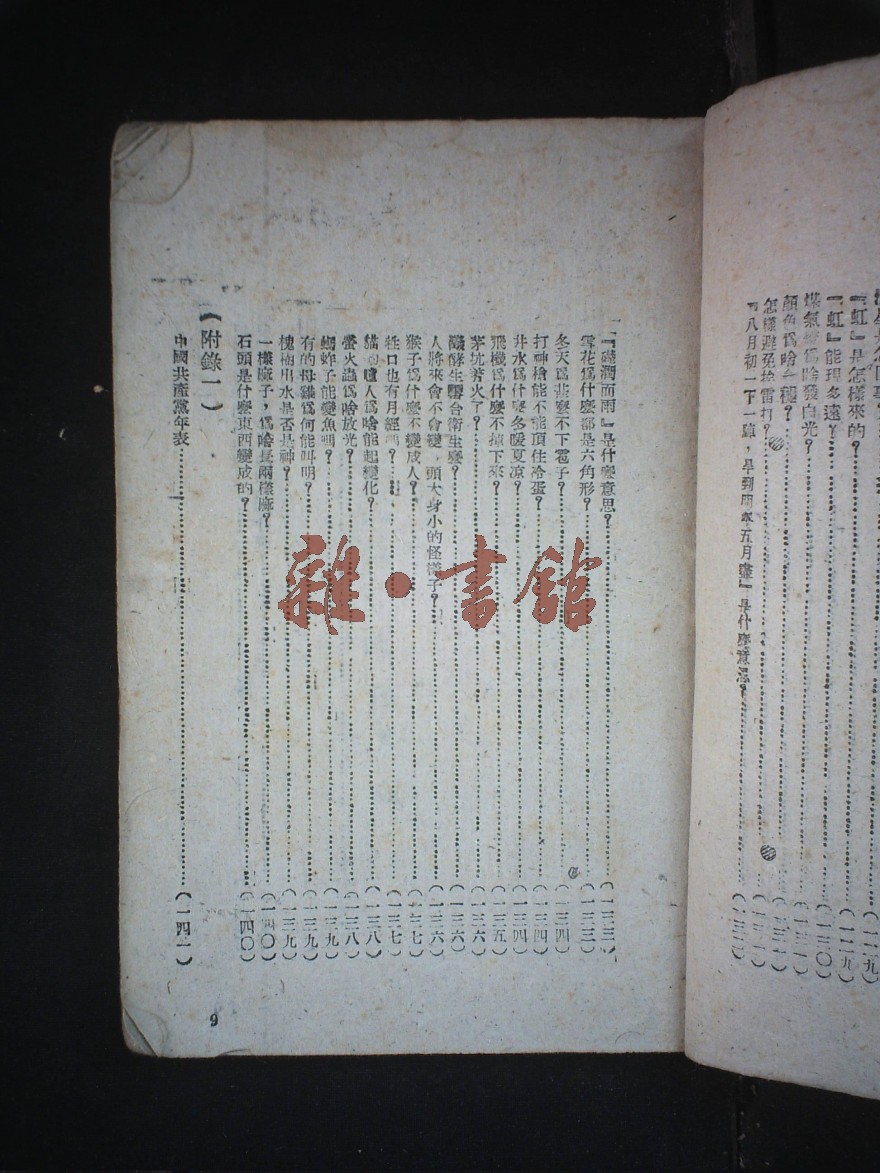 『虹』是怎樣來的？……（一二九）
『虹』能現多遠？……（一二九）
煤氣燈爲啥發白光？……（一三〇）
顏色爲啥
怎樣避免挨雷打？
『八月初一下一陣，旱到明年五月盡』是什麼意思？
『礎潤而雨』是什麼意思？
雪花爲什麼都是六角形？……（一三三）
冬天爲甚麼不下雹子？……（一三四）
打神槍能不能頂住冷蛋？……（一三四）
井水爲什麼冬暖夏凉？……（一三四）
飛機爲什麼不掉下來？……（一三五）
茅坑著火了？……（一三六）
醱酵生馨合衛生麼？……（一三六）
人將來會不會變，頭大身小的怪樣子？……（一三六）
猴子爲什麼不變成人？……（一三七）
牲口也有月經嗎？……（一三七）
貓的瞳人爲啥能起變化？……（一三八）
螢火蟲爲啥放光？……（一三八）
螞蚱子能變魚嗎？……（一三九）
有的母雞爲何能叫明？……（一三九）
槐樹出水是否是神？……（一三九）
一樣麻子，爲啥
石頭是什麼東西變成的？……（一四〇）
（附錄一）
中國共產黨年表……（一四一）
9
雜·書館